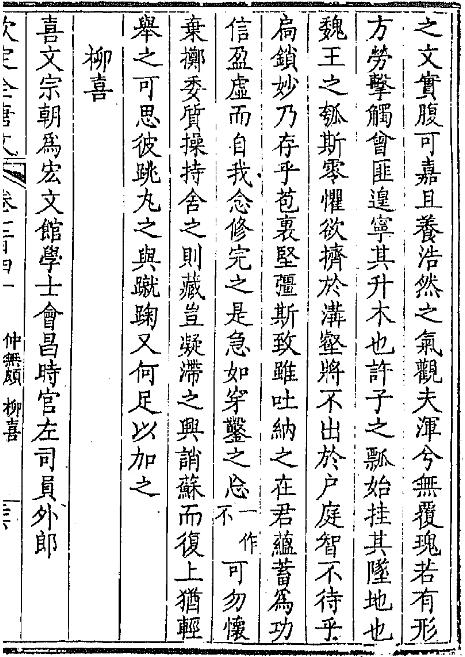 之文實腹可嘉且養浩然之氣觀夫渾兮無覆瑰若有形
方勞擊觸曾匪遑寧其升木也許子之瓢始挂其墜地也
魏王之瓠斯零懼欲擠於溝壑將不出於戶庭智不待乎
扃鎖妙乃存乎苞裹堅彊斯致雖吐納之在君蘊蓄為功
信盈虛而自我念修完之是急如穿鑿之忌一作不可勿懷
棄擲委質操持舍之則藏豈凝滯之興誚蘇而復上猶輕
舉之可思彼跳丸之與蹴踘又何足以加之
柳喜
喜文宗朝為宏文館學士會昌時官左司員外郎
欽定全唐文 卷 仲無頗 柳喜